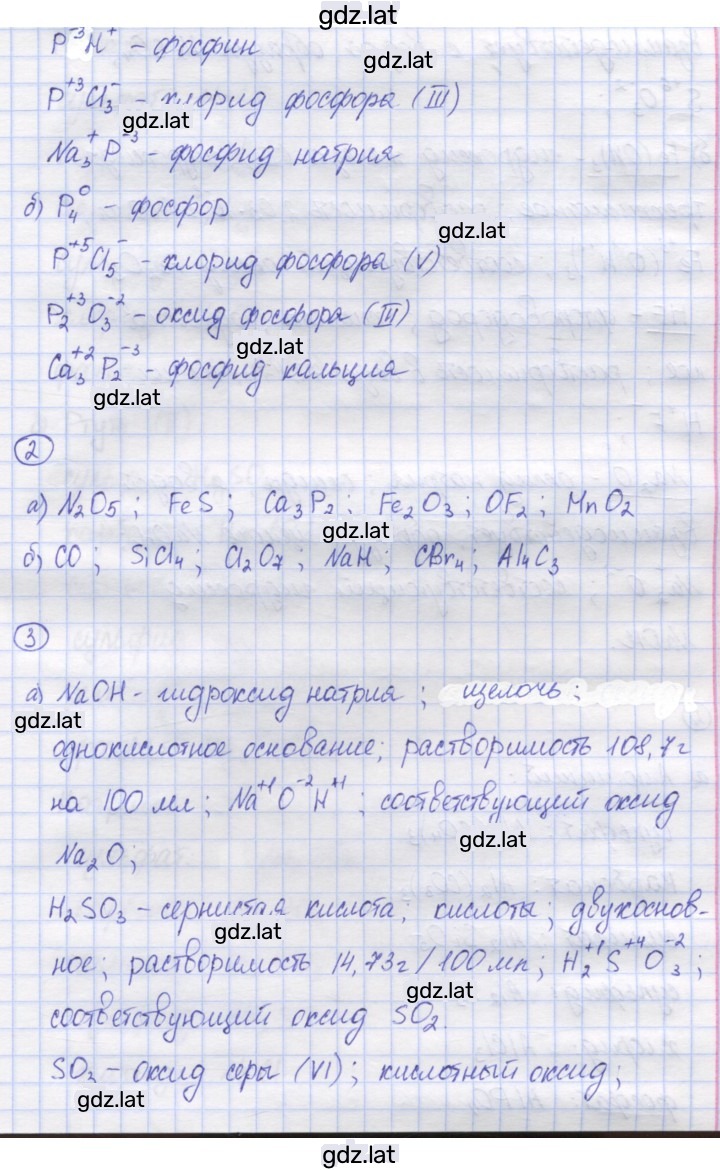 gdz.lat
P⁻³H⁺ - фосфин
gdz.lat
P⁺³Cl₃⁻ - хлорид фосфора (III)
gdz.lat
Na₃⁺P⁻³ - фосфид натрия
б) P₄⁰ - фосфор
gdz.lat
P⁺⁵Cl₅⁻ - хлорид фосфора (V)
P₂⁺³O₃⁻² - оксид фосфора (III)
gdz.lat
Ca₃⁺²P₂⁻³ - фосфид кальция
gdz.lat
2
а) N₂O₅; FeS; Ca₃P₂; Fe₂O₃; OF₂; MnO₂
gdz.lat
б) CO; SiCl₄; Cl₂O₇; NaH; CBr₄; Al₄C₃
3
а) NaOH - гидроксид натрия; щелочь;
gdz.lat
однокислотное основание; растворимость 108,7г
на 100 мл; Na⁺¹O⁻²H⁺¹; соответствующий оксид
gdz.lat
Na₂O;
H₂SO₃ - сернистая кислота; кислоты; двухоснов-
gdz.lat
ное; растворимость 14,73г/100 мл; H₂⁺¹S⁺⁴O₃⁻²;
gdz.lat
соответствующий оксид SO₂.
SO₃ - оксид серы (VI); кислотный оксид;
gdz.lat
gdz.lat